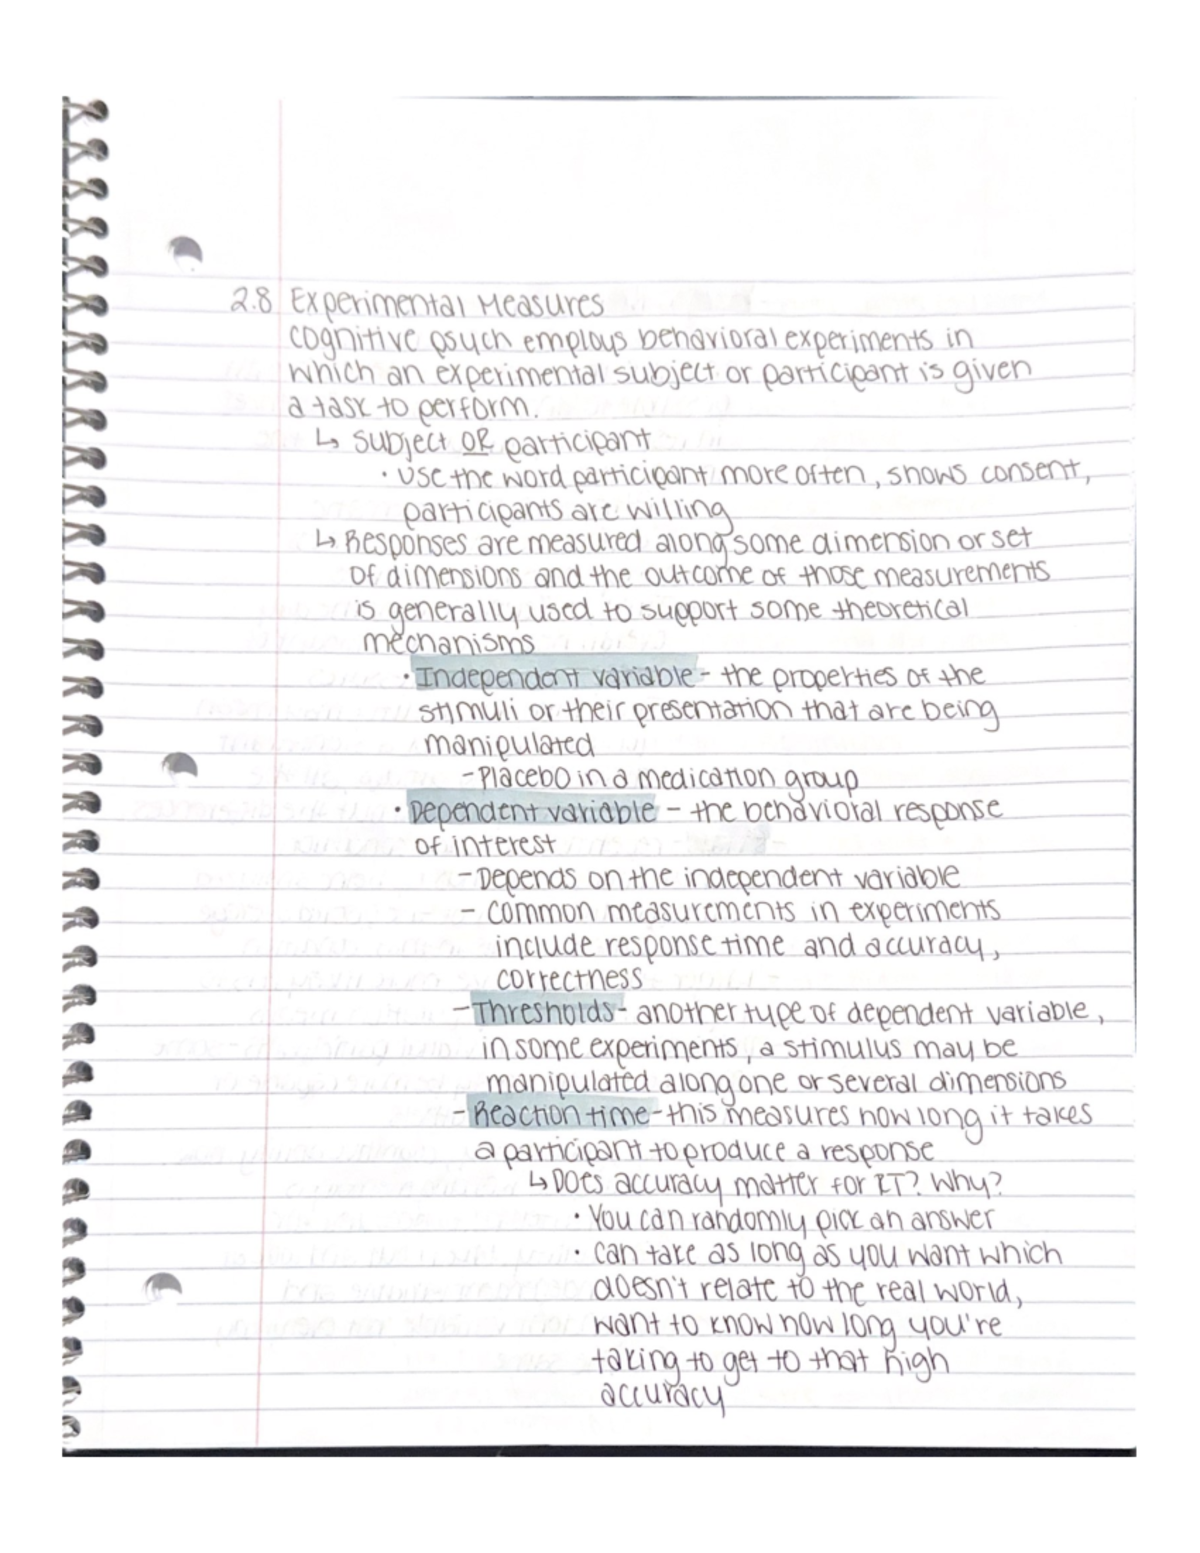 2.8 Experimental Measures
cognitive psych employs behavioral experiments in
which an experimental subject or participant is given
a task to perform.
↳ subject OR participant
• use the word participant more often, shows consent,
participants are willing
↳ Responses are measured along some dimension or set
of dimensions and the outcome of those measurements
is generally used to support some theoretical
mechanisms
• Independent variable - the properties of the
stimuli or their presentation that are being
manipulated
- Placebo in a medication group
• Dependent variable - the behavioral response
of interest
- Depends on the independent variable
- common measurements in experiments
include response time and accuracy,
correctness
- Thresholds - another type of dependent variable,
in some experiments, a stimulus may be
manipulated along one or several dimensions
- Reaction time - this measures how long it takes
a participant to produce a response
↳ Does accuracy matter for RT? Why?
• You can randomly pick an answer
• can take as long as you want which
doesn't relate to the real world,
want to know how long you're
taking to get to that high
accuracy